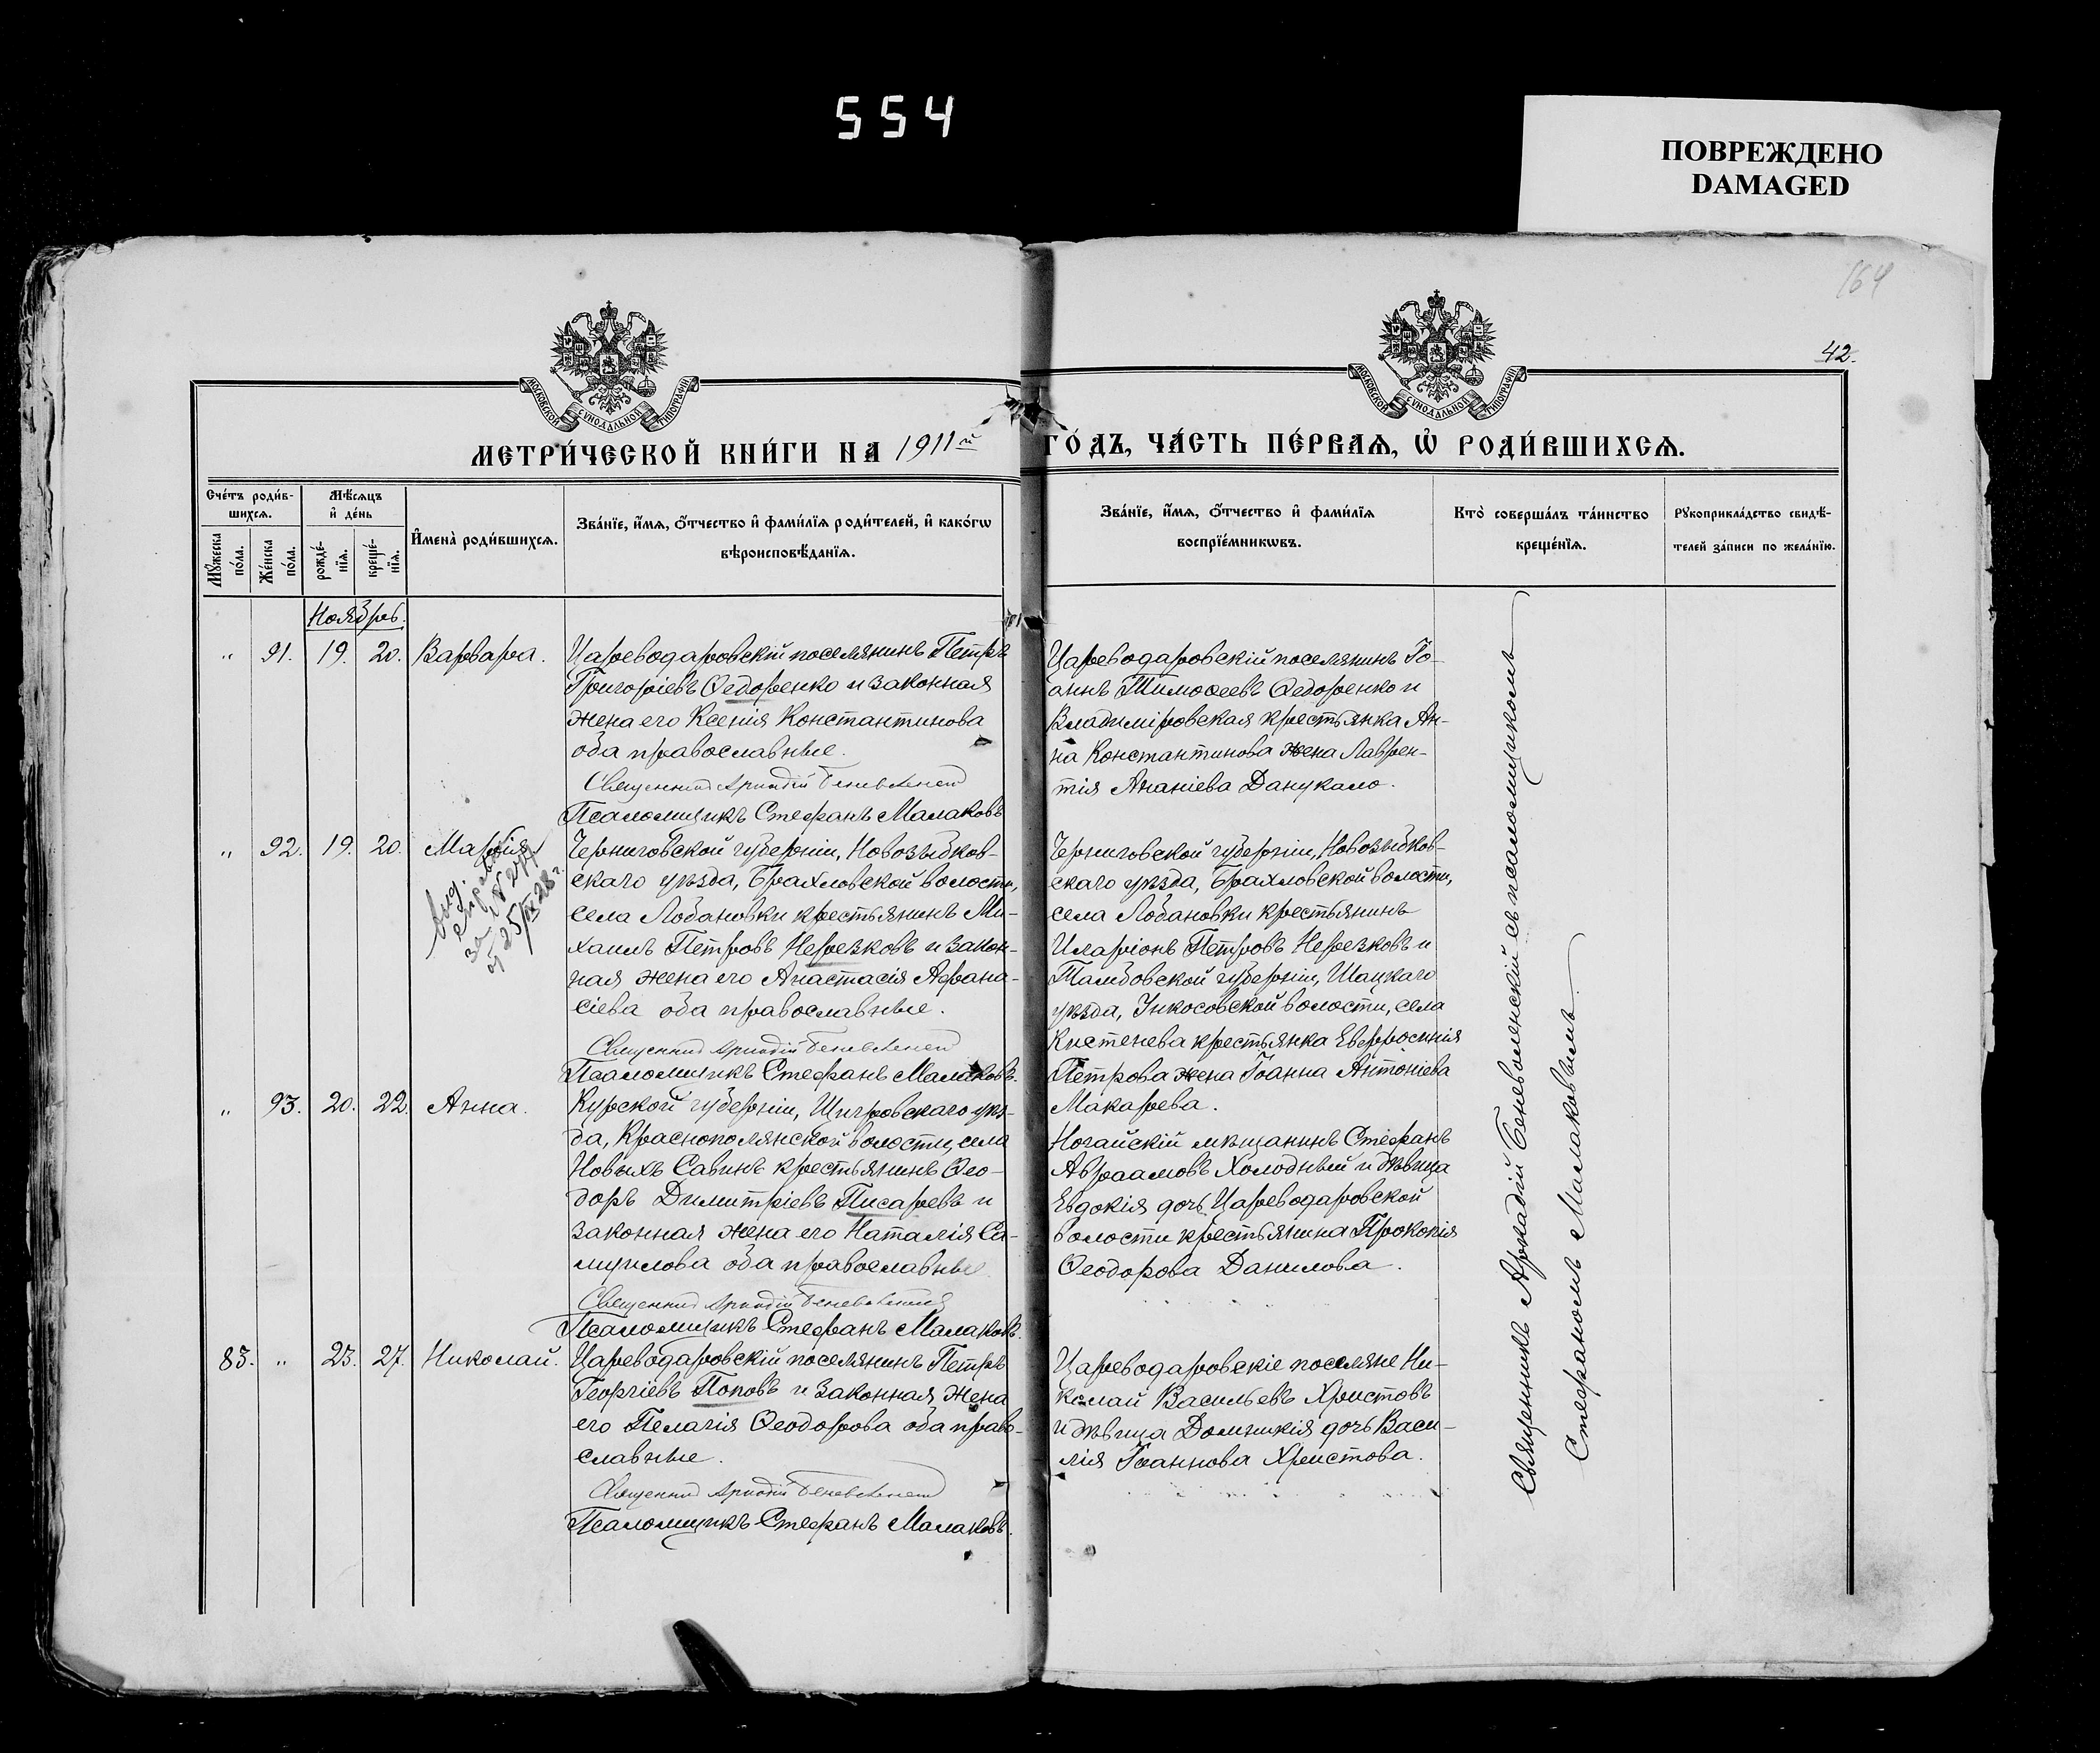 554
ПОВРЕЖДЕНО
DAMAGED
164
42.
МОСКОВСКОЙ СУНОДАЛЬНОЙ ТИПОГРАФІИ
МОСКОВСКОЙ СУНОДАЛЬНОЙ ТИПОГРАФІИ
МЕТРИ́ЧЕСКОЙ КНИ́ГИ НА 1911й
ГО́ДЪ, ЧА́СТЬ ПЕ́РВАѦ, Ѡ҆ РОДИ́ВШИХСѦ.
Сче́тъ роди́в-
шихсѧ.
Мꙋ́жеска
по́ла.
Же́нска
по́ла.
Мѣ́сѧцъ
и҆ де́нь
рожде́-
нїѧ.
креще́-
нїѧ.
И҆мена̀ роди́вшихсѧ.
Зва́нїе, и҆́мѧ, ѻ҆́тчество и҆ фами́лїѧ роди́телей, и҆ како́гѡ
вѣроисповѣ́данїѧ.
Зва́нїе, и҆́мѧ, ѻ҆́тчество и҆ фами́лїѧ
воспрїе́мникѡвъ.
Кто̀ соверша́лъ та́инство
креще́нїѧ.
Рꙋкоприкла́дство свидѣ́-
телей за́писи по жела́нїю.
Ноябрь.
" 91. 19. 20. Варвара.
Цареводаровскій поселянинъ Петръ
Григоріевъ Ѳедоренко и законная
жена его Ксенія Константинова
оба православные.
Священник Аркадій Беневоленскій
Псаломщикъ Стефанъ Малаковъ
Цареводаровскій поселянинъ Іо-
аннъ Тимоѳеевъ Ѳедоренко и
Владиміровская крестьянка Ан-
на Константинова жена Лаврен-
тія Ананіева Данукало.
" 92. 19. 20. Марія.
выд.
справка
за № 274
от 25/IX 28 г.
Черниговской губерніи, Новозыбков-
скаго уѣзда, Брахловской волости,
села Лобановки крестьянинъ Ми-
хаилъ Петровъ Нерезковъ и закон-
ная жена его Анастасія Афана-
сіева оба православные.
Священник Аркадій Беневоленскій
Псаломщикъ Стефанъ Малаковъ.
Черниговской губерніи, Новозыбков-
скаго уѣзда, Брахловской волости,
села Лобановки крестьянинъ
Иларіонъ Петровъ Нерезковъ и
Тамбовской губерніи, Шацкаго
уѣзда, Инкосовской волости, села
Кистенева крестьянка Евфросинія
Петрова жена Іоанна Антоніева
Макарева.
" 93. 20. 22. Анна.
Курской губерніи, Щигровскаго уѣз-
да, Краснополянской волости, села
Новыхъ Савинъ крестьянинъ Ѳео-
доръ Димитріевъ Писаревъ и
законная жена его Наталія Са-
муилова оба православные
Священник Аркадій Беневоленскій
Псаломщикъ Стефанъ Малаковъ.
Ногайскій мѣщанинъ Стефанъ
Авраамовъ Холодный и дѣвица
Евдокія дочь Цареводаровской
волости крестьянина Прокопія
Ѳеодорова Данилова.
83. " 23. 27. Николай.
Цареводаровскій поселянинъ Петръ
Георгіевъ Поповъ и законная жена
его Пелагія Ѳеодорова оба право-
славные.
Священник Аркадій Беневоленскій
Псаломщикъ Стефанъ Малаковъ.
Цареводаровскіе поселяне Ни-
колай Васильевъ Христовъ
и дѣвица Домникія дочь Васи-
лія Іоаннова Христова.
Священникъ Аркадій Беневоленскій съ псаломщикомъ
Стефаномъ Малаковымъ.